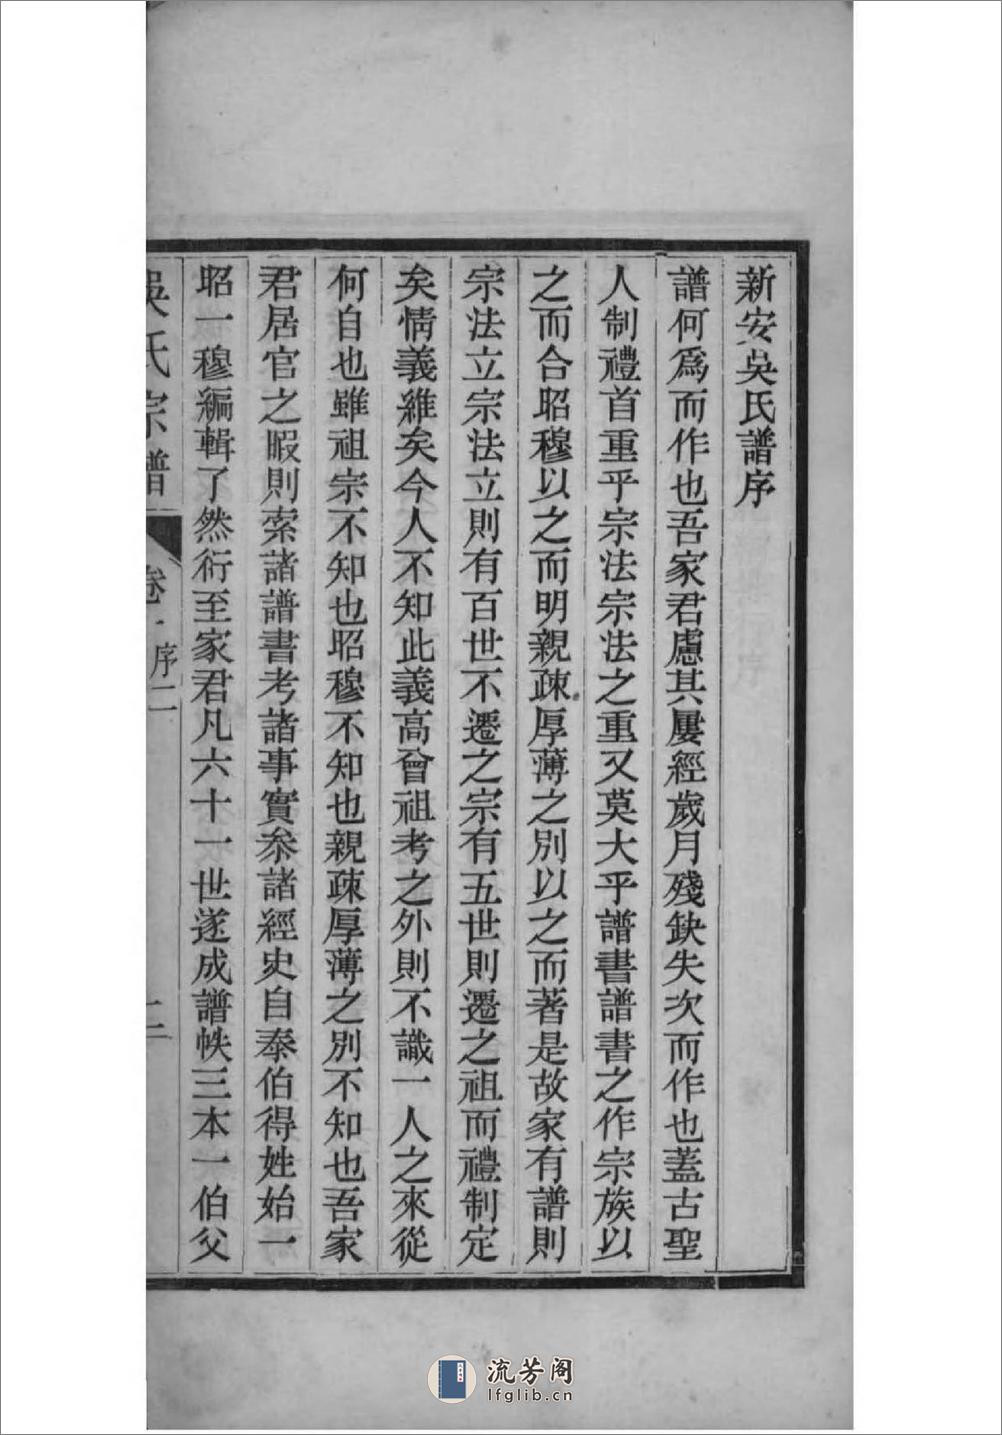 新安吳氏譜序
譜何爲而作也吾家君慮其屢經歲月殘缺失次而作也蓋古聖
人制禮首重乎宗法宗法之重又莫大乎譜書譜書之作宗族以
之而合昭穆以之而明親疎厚薄之別以之而著是故家有譜則
宗法立宗法立則有百世不遷之宗有五世則遷之祖而禮制定
矣情義維矣今人不知此義高曾祖考之外則不識一人之來從
何自也雖祖宗不知也昭穆不知也親疎厚薄之別不知也吾家
君居官之暇則索諸譜書考諸事實叅諸經史自泰伯得姓始一
昭一穆編輯了然衍至家君凡六十一世遂成譜帙三本一伯父
吳氏宗譜 卷一 序二 二
流芳阁
lfglib.cn